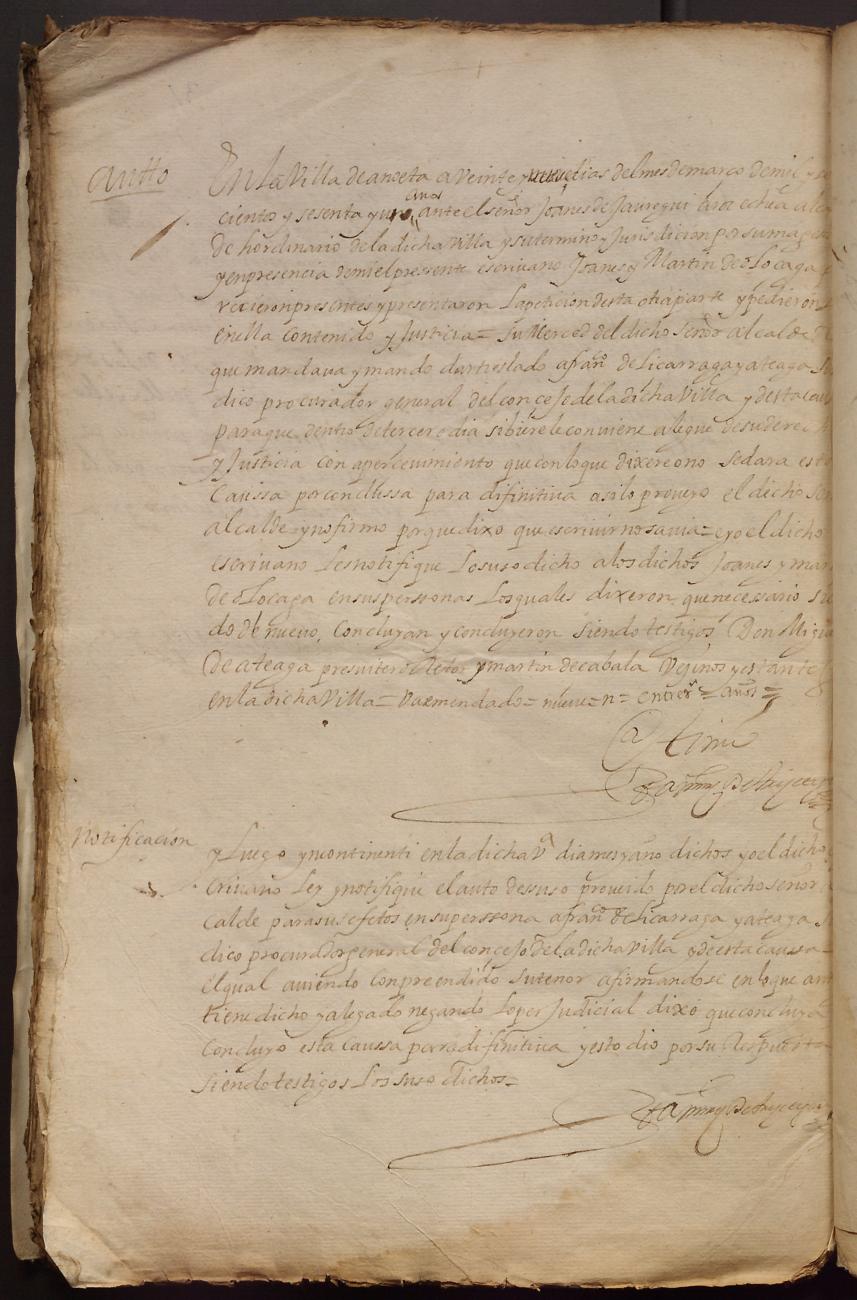 Autto
En la Villa de anoeta a veinte y nueve dias del mes de março de mil y s
ciento y sesenta y uno años ante el señor Joanes de Jauregui alcal
de hordinario de la dicha villa y su termino y Jurisdicion por su mages
y en presencia de mi el presente escrivano Joanes y Martin de olocaga p
recieron presentes y presentaron la peticion desta otra parte y pedieron
en ella contenido y Justicia = su Merced del dicho señor alcalde
que mandava y mando dar treslado a fran.co de Licarraga y ateaga Sin
dico procurador general del concejo de la dicha Villa y desta cau
para que dentro de tercero dia si biere le conviene alegue de su derech
y Justicia con apercevimiento que con lo que dixere o no se dara esta
Caussa por conclussa para difinitiva asi lo proveyo el dicho señ
alcalde y no firmo porque dixo que escrivir no savia = e yo el dicho
escrivano les notifique lo suso dicho a los dichos Joanes y mar
de olocaga en sus perssonas los quales dixeron que necessario si
do de nuevo, Concluyan y concluyeron siendo testigos Don Migu
De ateaga presvitero Retor y martin de cabala Vecinos y estante
en la dicha Villa = Va emendado = nueve = n = entre r.s = años =
Ante mi
Notificación
y luego yncontinenti en la dicha V.a dia mes y año dichos yo el dicho
crivano ley y notifique el auto de suso proveido por el dicho señor a
calde para sus efetos en su perssona a fran.co de licarraga y ateaga S
dico procurador general del concejo de la dicha villa y de esta caussa
el qual aviendo conpreendido su tenor afirmandose en lo que an
tiene dicho y alegado negando lo perJudicial dixo que concluya
Concluyo esta caussa para difinitiva y esto dio por su Respuesta
siendo testigos los suso dichos =